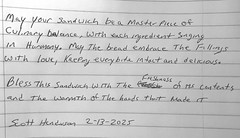 May your Sandwich be a Master Piece of
Culinary balance, with each ingredient Singing
in Harmony. May The bread embrace The Fillings
with love, Keeping every bite intact and delicious.
Freshness
Bless This Sandwich with The of its contents
and The warmth of The hands that Made it
Scott Henderson 2-13-2025